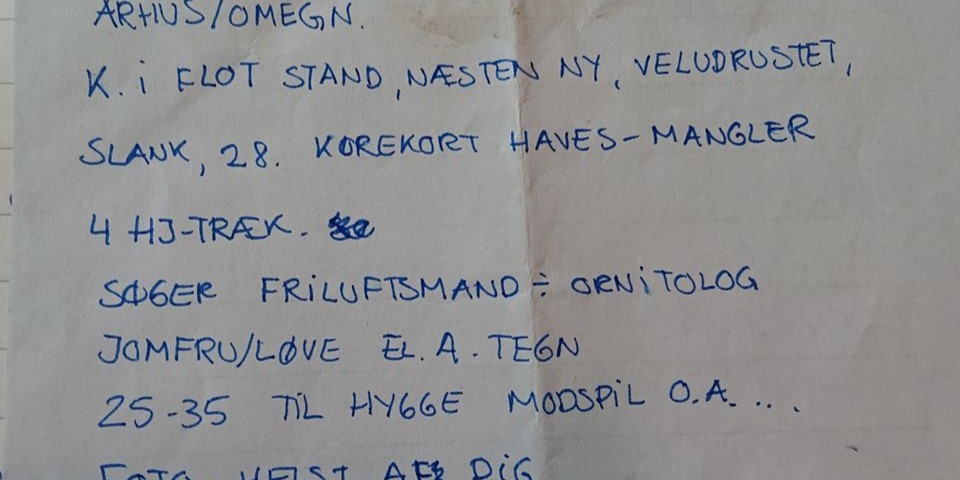 ARHUS/OMEGN.
K. i FLOT STAND, NÆSTEN NY, VELUDRUSTET,
SLANK, 28. KØREKORT HAVES - MANGLER
4 HJ-TRÆK.
SØGER FRILUFTSMAND ÷ ORNITOLOG
JOMFRU/LØVE EL. A. TEGN
25-35 TIL HYGGE MODSPIL O.A. ...
FOTO HELST AF DIG